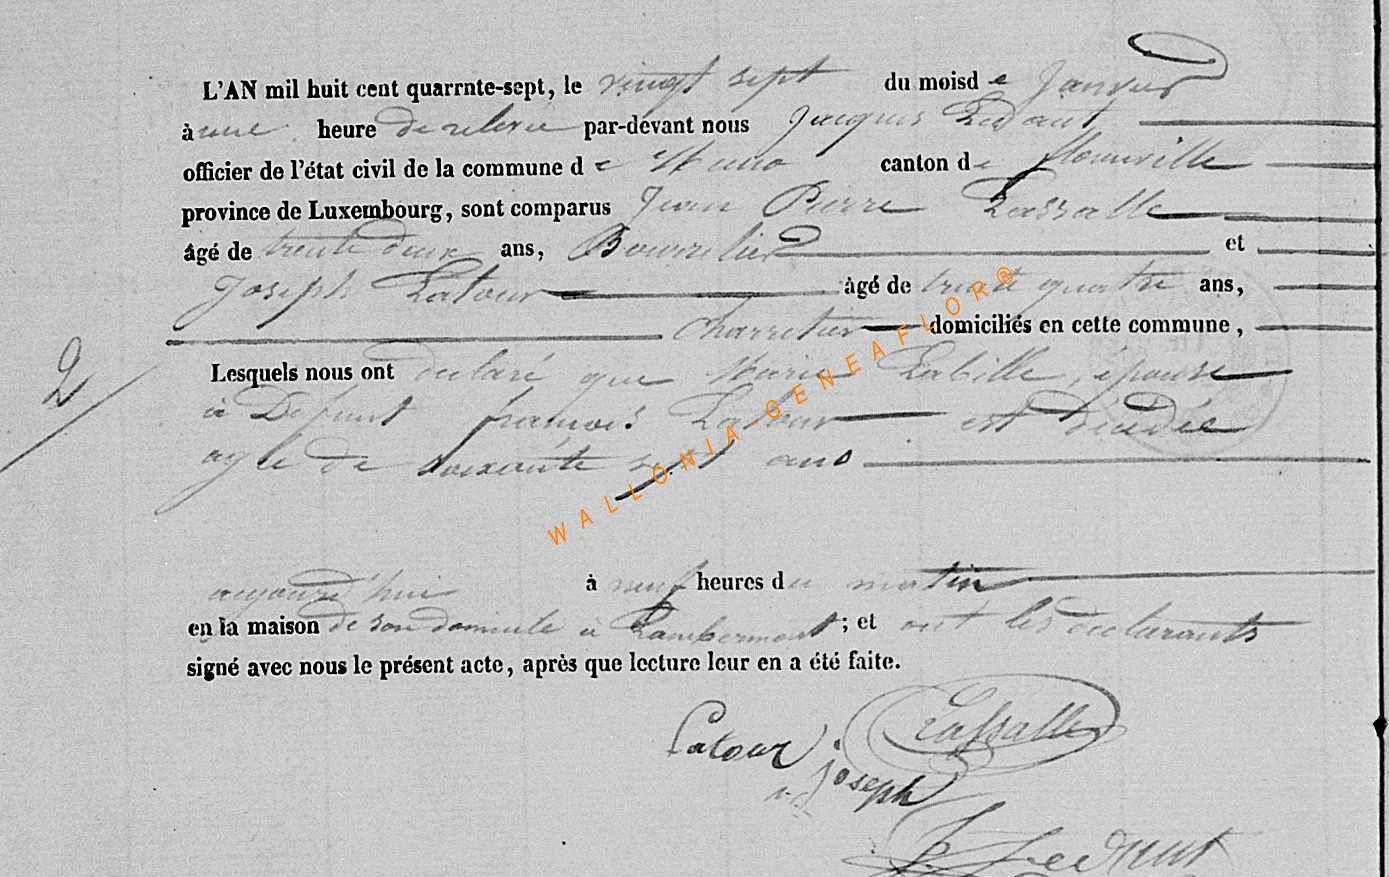 L'AN mil huit cent quarrnte-sept, le vingt sept du moisd e Janvier
à une heure de relevée par-devant nous Jacques Ledant
officier de l'état civil de la commune d e Muno canton d e florenville
province de Luxembourg, sont comparus Jean Pierre Lassalle
âgé de trente deux ans, Bourrelier et
Joseph Latour âgé de trente quatre ans,
charretier domiciliés en cette commune,
2 Lesquels nous ont declaré que Marie Labille, épouse
à Defunt francois Latour est décédée
agée de soixante sept ans
aujourd'hui à neuf heures du matin
en la maison de son domicile à Lambermont; et ont les déclarants
signé avec nous le présent acte, après que lecture leur en a été faite.
Latour Lassalle
joseph
J. Ledant
WALLONIA-GENEAFLOR®